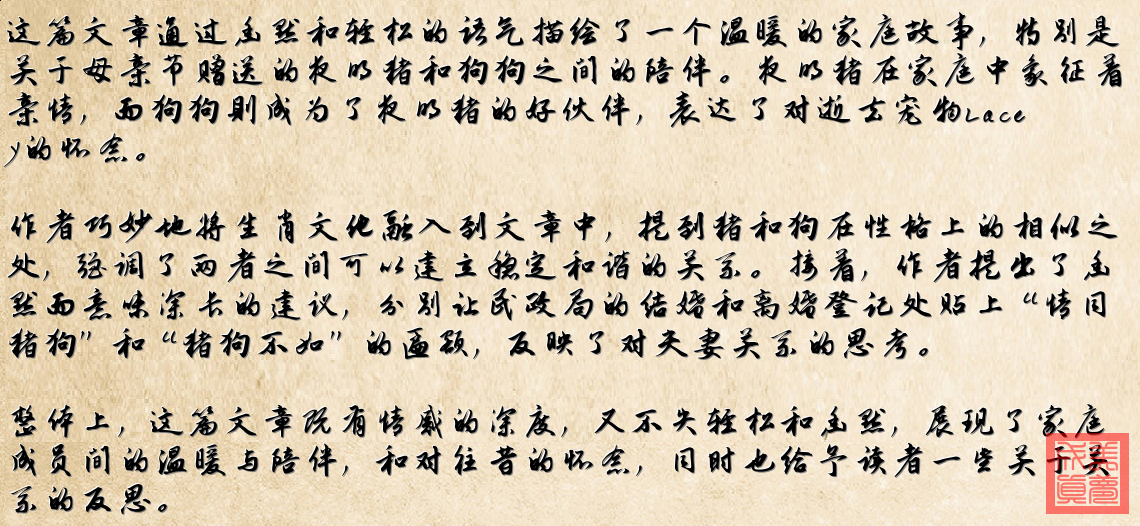 这篇文章通过幽默和轻松的语气描绘了一个温暖的家庭故事，特别是
关于母亲节赠送的夜明猪和狗狗之间的陪伴。夜明猪在家庭中象征着
亲情，而狗狗则成为了夜明猪的好伙伴，表达了对逝去宠物Lace
y的怀念。
作者巧妙地将生肖文化融入到文章中，提到猪和狗在性格上的相似之
处，强调了两者之间可以建立稳定和谐的关系。接着，作者提出了幽
默而意味深长的建议，分别让民政局的结婚和离婚登记处贴上“情同
猪狗”和“猪狗不如”的匾额，反映了对夫妻关系的思考。
整体上，这篇文章既有情感的深度，又不失轻松和幽默，展现了家庭
成员间的温暖与陪伴，和对往昔的怀念，同时也给予读者一些关于关
系的反思。